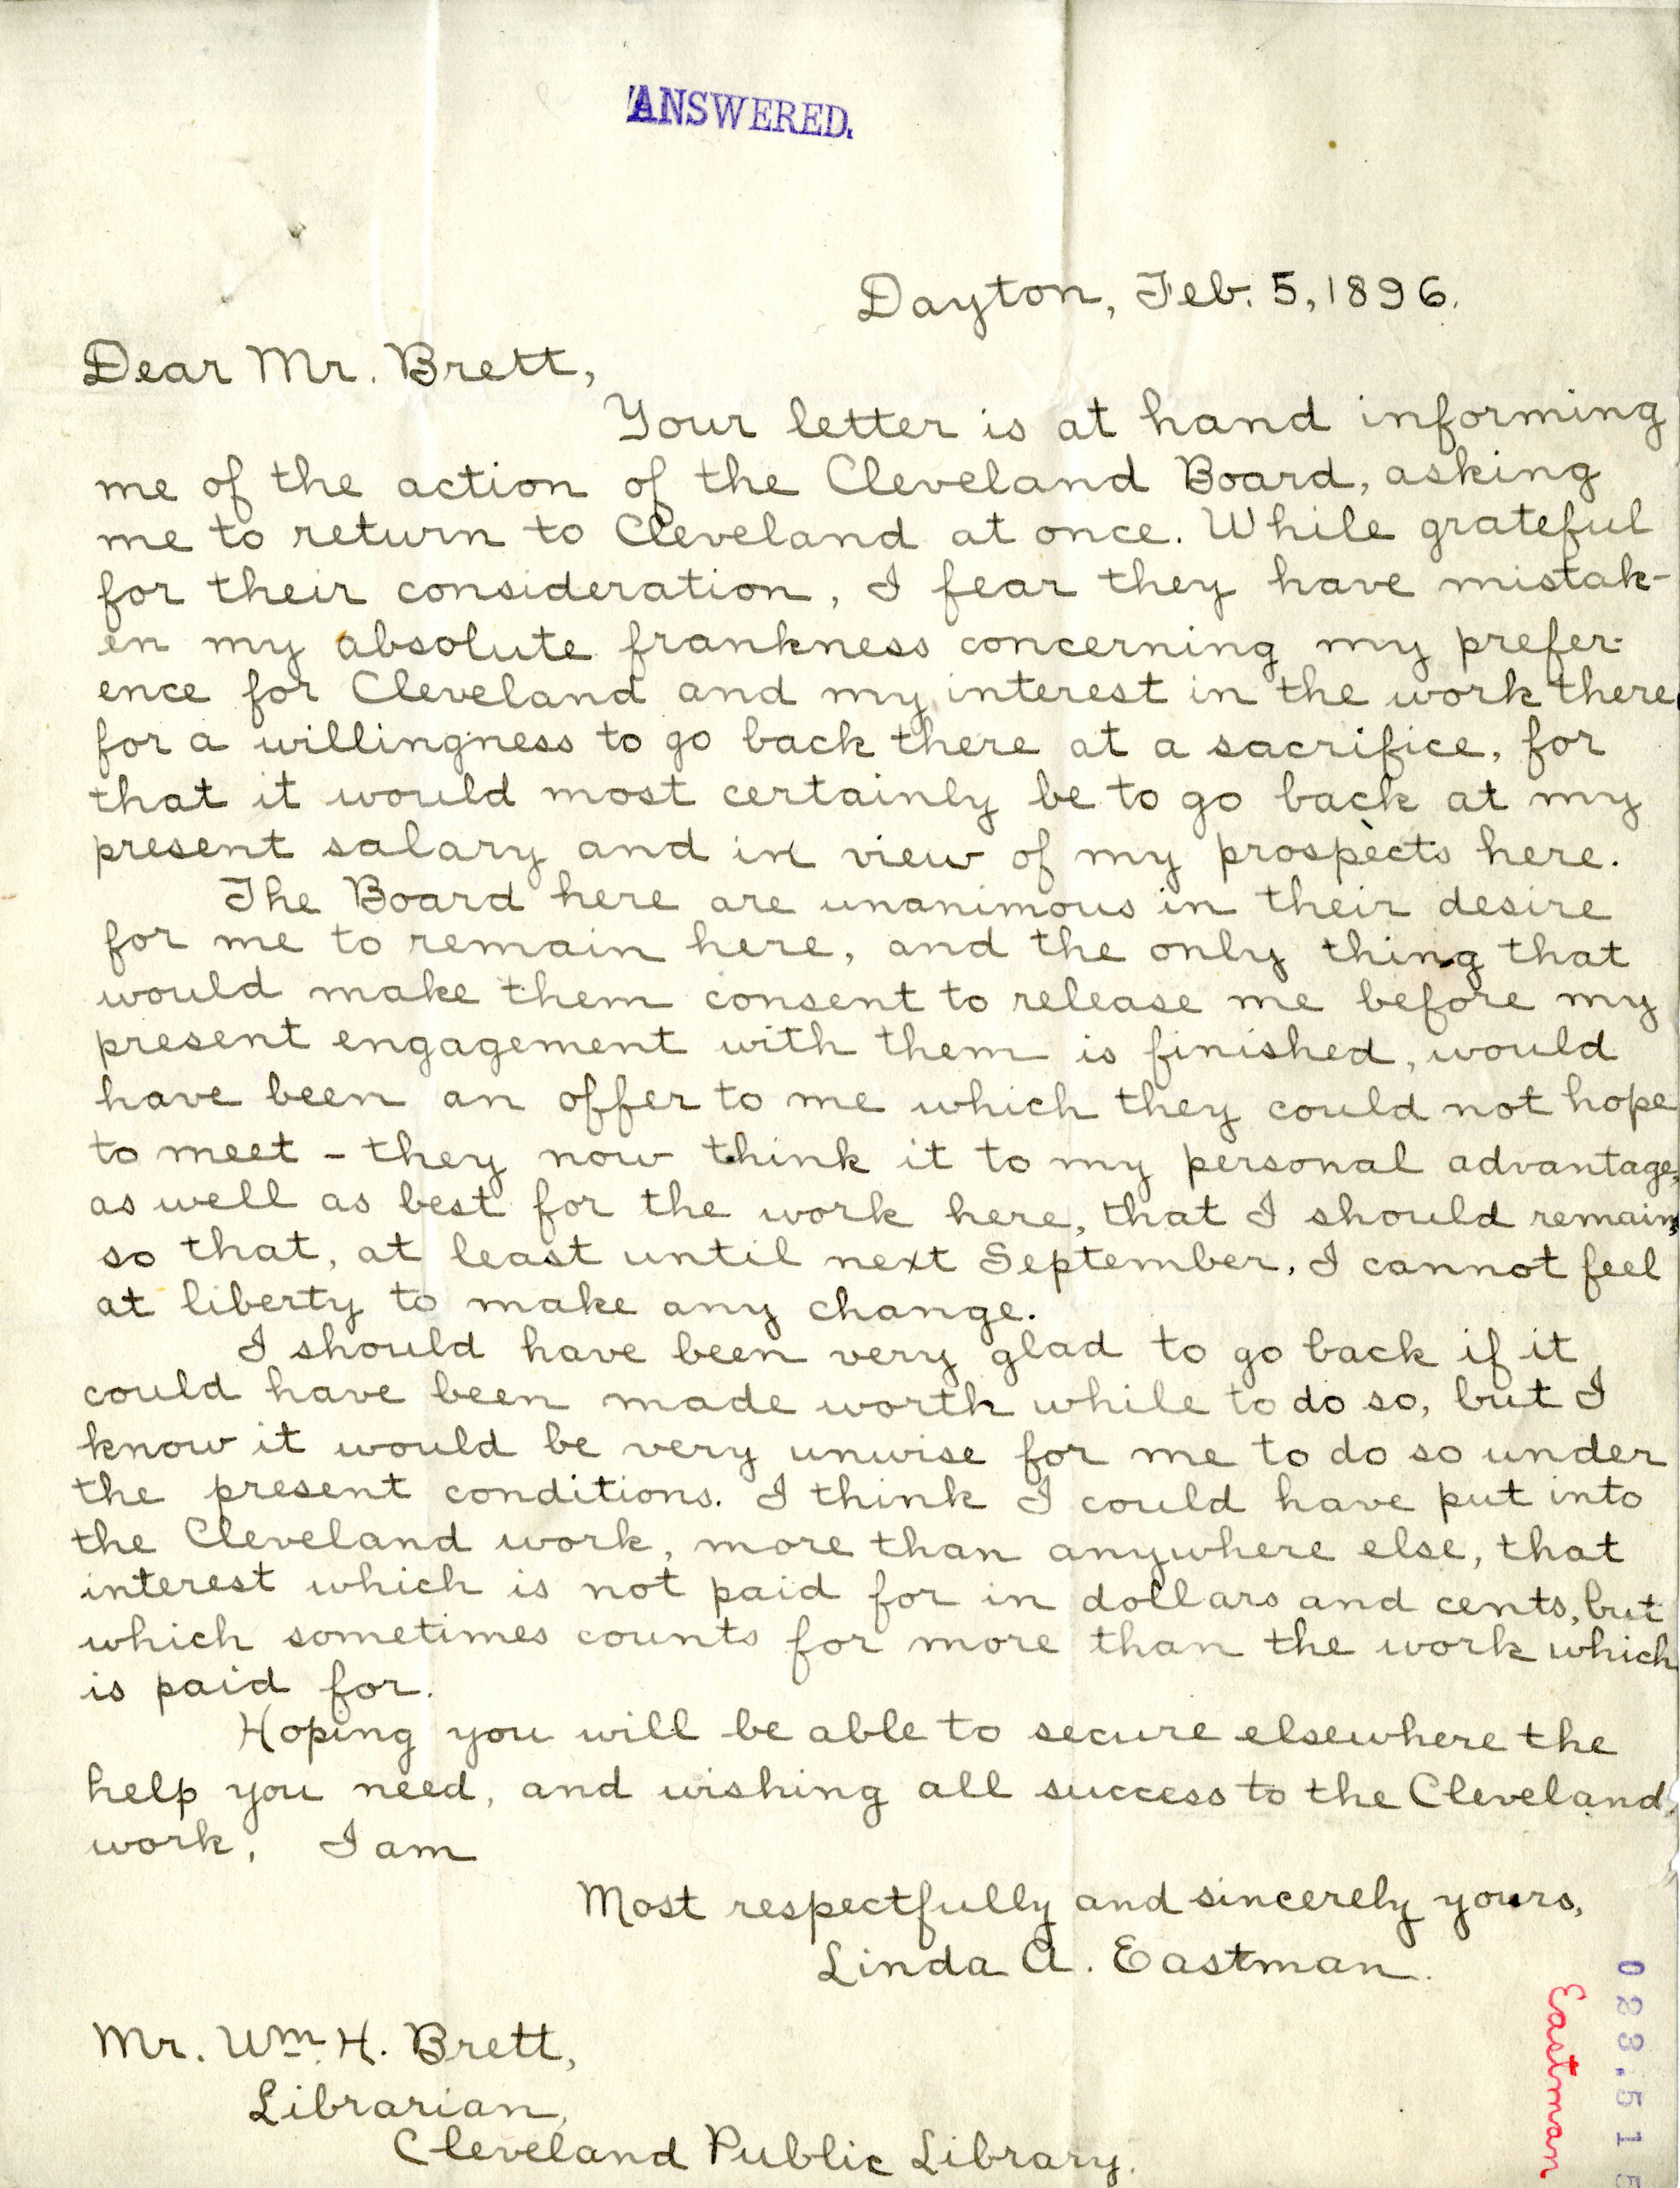 ANSWERED.
Dayton, Feb. 5, 1896.
Dear Mr. Brett,
Your letter is at hand informing
me of the action of the Cleveland Board, asking
me to return to Cleveland at once. While grateful
for their consideration, I fear they have mistak-
en my absolute frankness concerning my prefer-
ence for Cleveland and my interest in the work there
for a willingness to go back there at a sacrifice, for
that it would most certainly be to go back at my
present salary and in view of my prospects here.
The Board here are unanimous in their desire
for me to remain here, and the only thing that
would make them consent to release me before my
present engagement with them is finished, would
have been an offer to me which they could not hope
to meet - they now think it to my personal advantage,
as well as best for the work here, that I should remain,
so that, at least until next September, I cannot feel
at liberty to make any change.
I should have been very glad to go back if it
could have been made worth while to do so, but I
know it would be very unwise for me to do so under
the present conditions. I think I could have put into
the Cleveland work, more than anywhere else, that
interest which is not paid for in dollars and cents, but
which sometimes counts for more than the work which
is paid for.
Hoping you will be able to secure elsewhere the
help you need, and wishing all success to the Cleveland
work, I am
Most respectfully and sincerely yours,
Linda A. Eastman.
Mr. Wm. H. Brett,
Librarian,
Cleveland Public Library.
Eastman
023.515